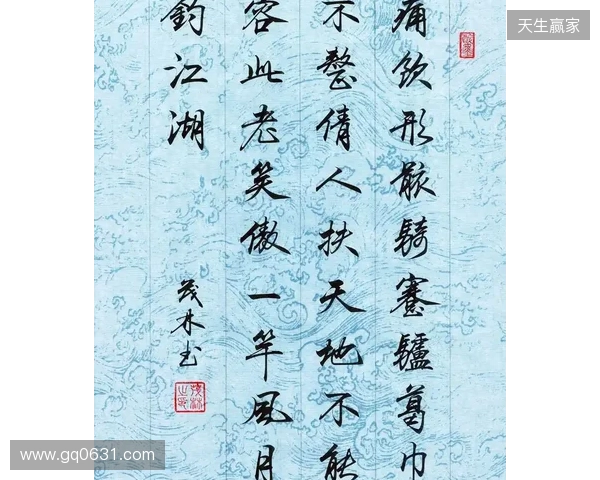 痛飲形骸騎蹇驢葛巾
不整倩人扶天地不能
容此老笑傲一竿風月
釣江湖
茂林书
天生赢家
www.gq0631.com